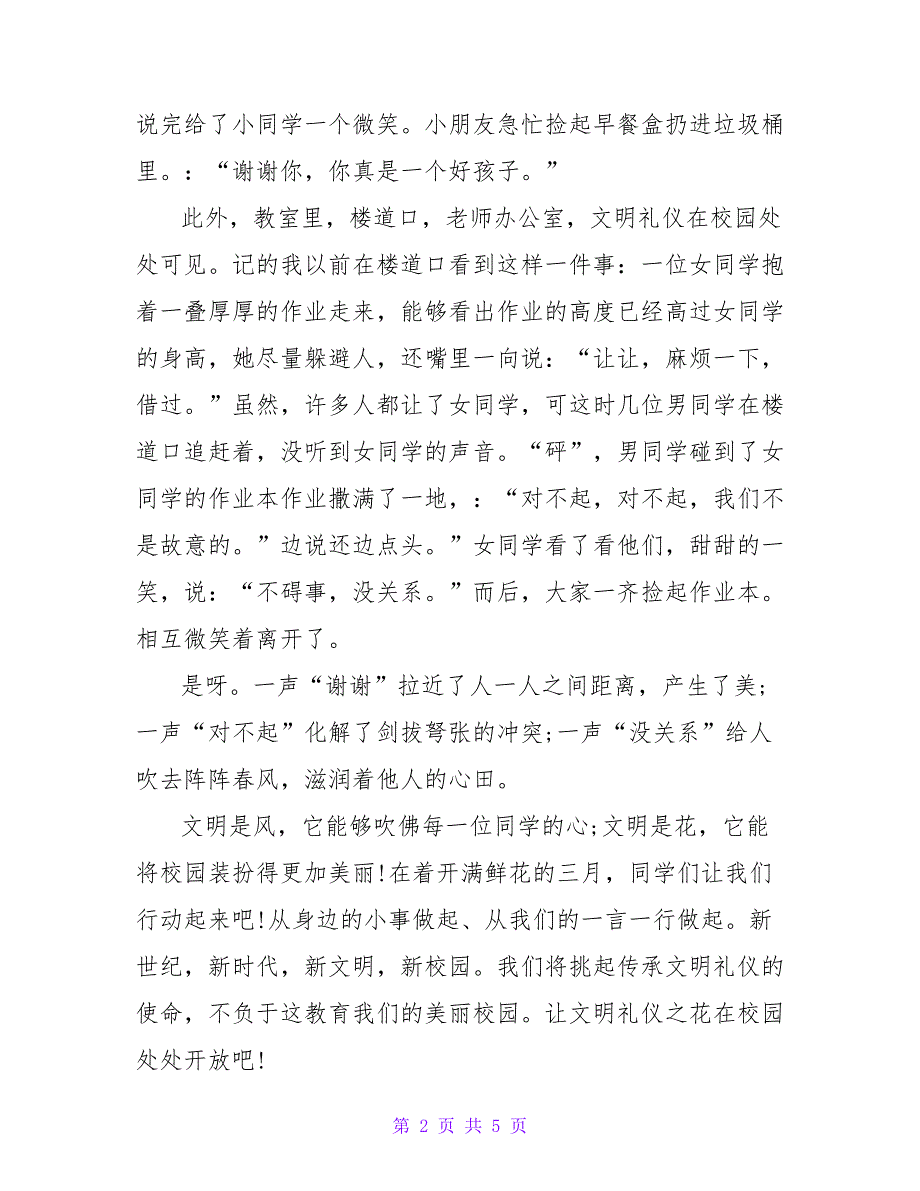 说完给了小同学一个微笑。小朋友急忙捡起早餐盒扔进垃圾桶
里。：“谢谢你，你真是一个好孩子。”
此外，教室里，楼道口，老师办公室，文明礼仪在校园处
处可见。记的我以前在楼道口看到这样一件事：一位女同学抱
着一叠厚厚的作业走来，能够看出作业的高度已经高过女同学
的身高，她尽量躲避人，还嘴里一向说：“让让，麻烦一下，
借过。”虽然，许多人都让了女同学，可这时几位男同学在楼
道口追赶着，没听到女同学的声音。“砰”，男同学碰到了女
同学的作业本作业撒满了一地，：“对不起，对不起，我们不
是故意的。”边说还边点头。”女同学看了看他们，甜甜的一
笑，说：“不碍事，没关系。”而后，大家一齐捡起作业本。
相互微笑着离开了。
是呀。一声“谢谢”拉近了人一人之间距离，产生了美;
一声“对不起”化解了剑拔弩张的冲突;一声“没关系”给人
吹去阵阵春风，滋润着他人的心田。
文明是风，它能够吹佛每一位同学的心;文明是花，它能
将校园装扮得更加美丽!在着开满鲜花的三月，同学们让我们
行动起来吧!从身边的小事做起、从我们的一言一行做起。新
世纪，新时代，新文明，新校园。我们将挑起传承文明礼仪的
使命，不负于这教育我们的美丽校园。让文明礼仪之花在校园
处处开放吧!
第 2 页 共 5 页